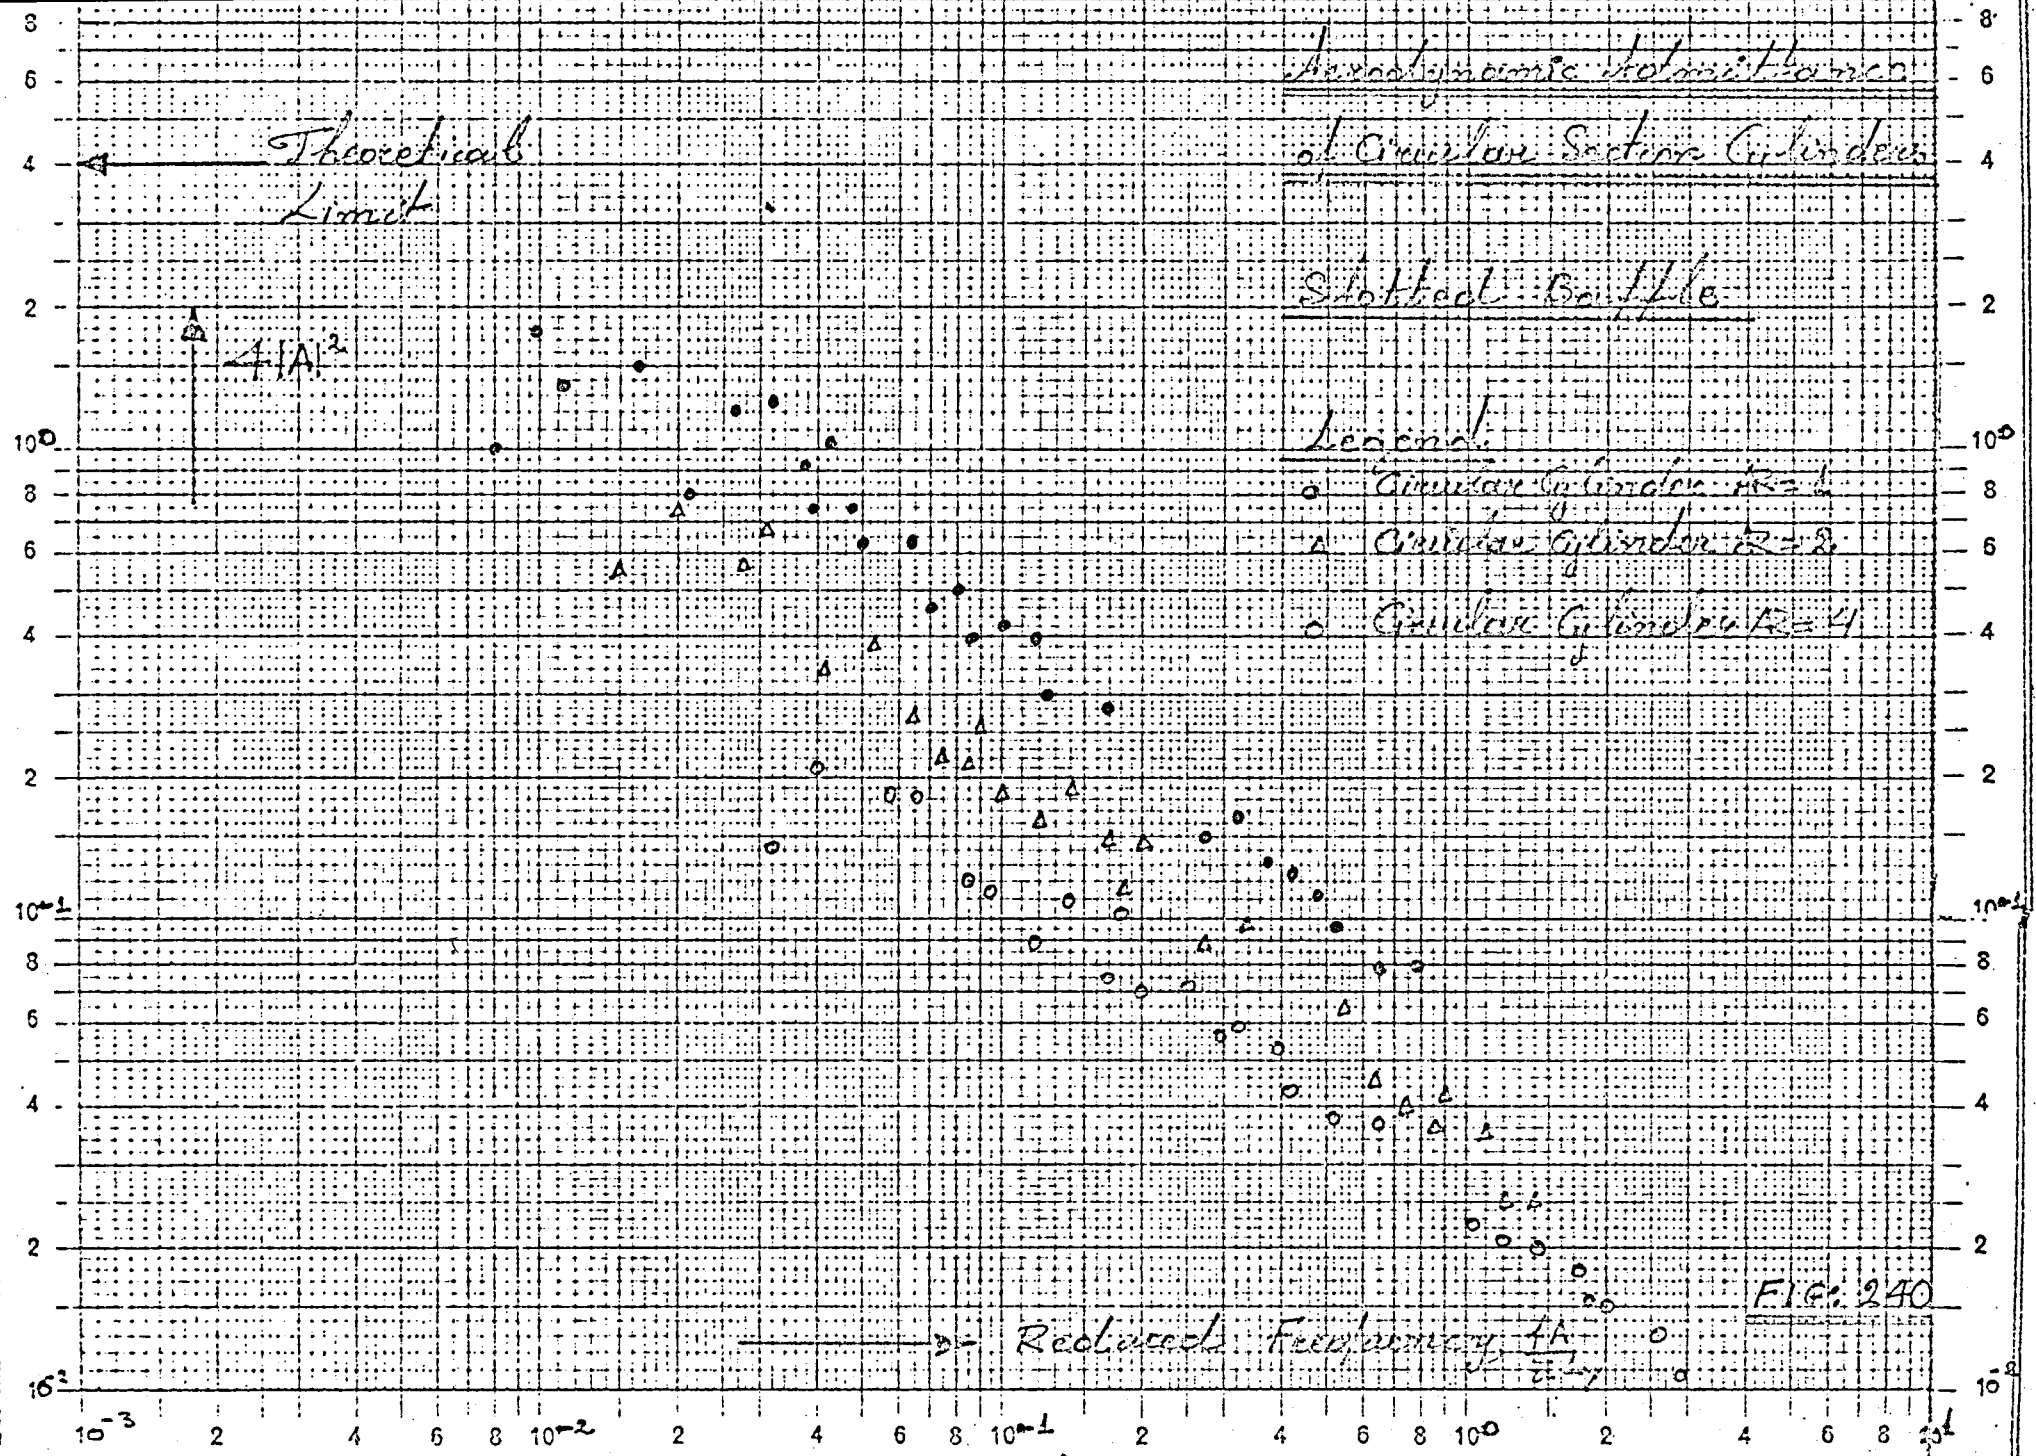 Aerodynamic Admittance
of Circular Section Cylinders
Theoretical
Limit
Slotted Baffle
4|A|²
Legend
o Circular Cylinder AR=1
Δ Circular Cylinder AR=2
o Circular Cylinder AR=4
FIG: 240
Reduced Frequency fh
8 6 4 2 10⁰ 8 6 4 2 10⁻¹ 8 6 4 2 10⁻²
8 6 4 2 10⁰ 8 6 4 2 10⁻¹ 8 6 4 2 10⁻²
10⁻³ 2 4 6 8 10⁻² 2 4 6 8 10⁻¹ 2 4 6 8 10⁰ 2 4 6 8 10¹